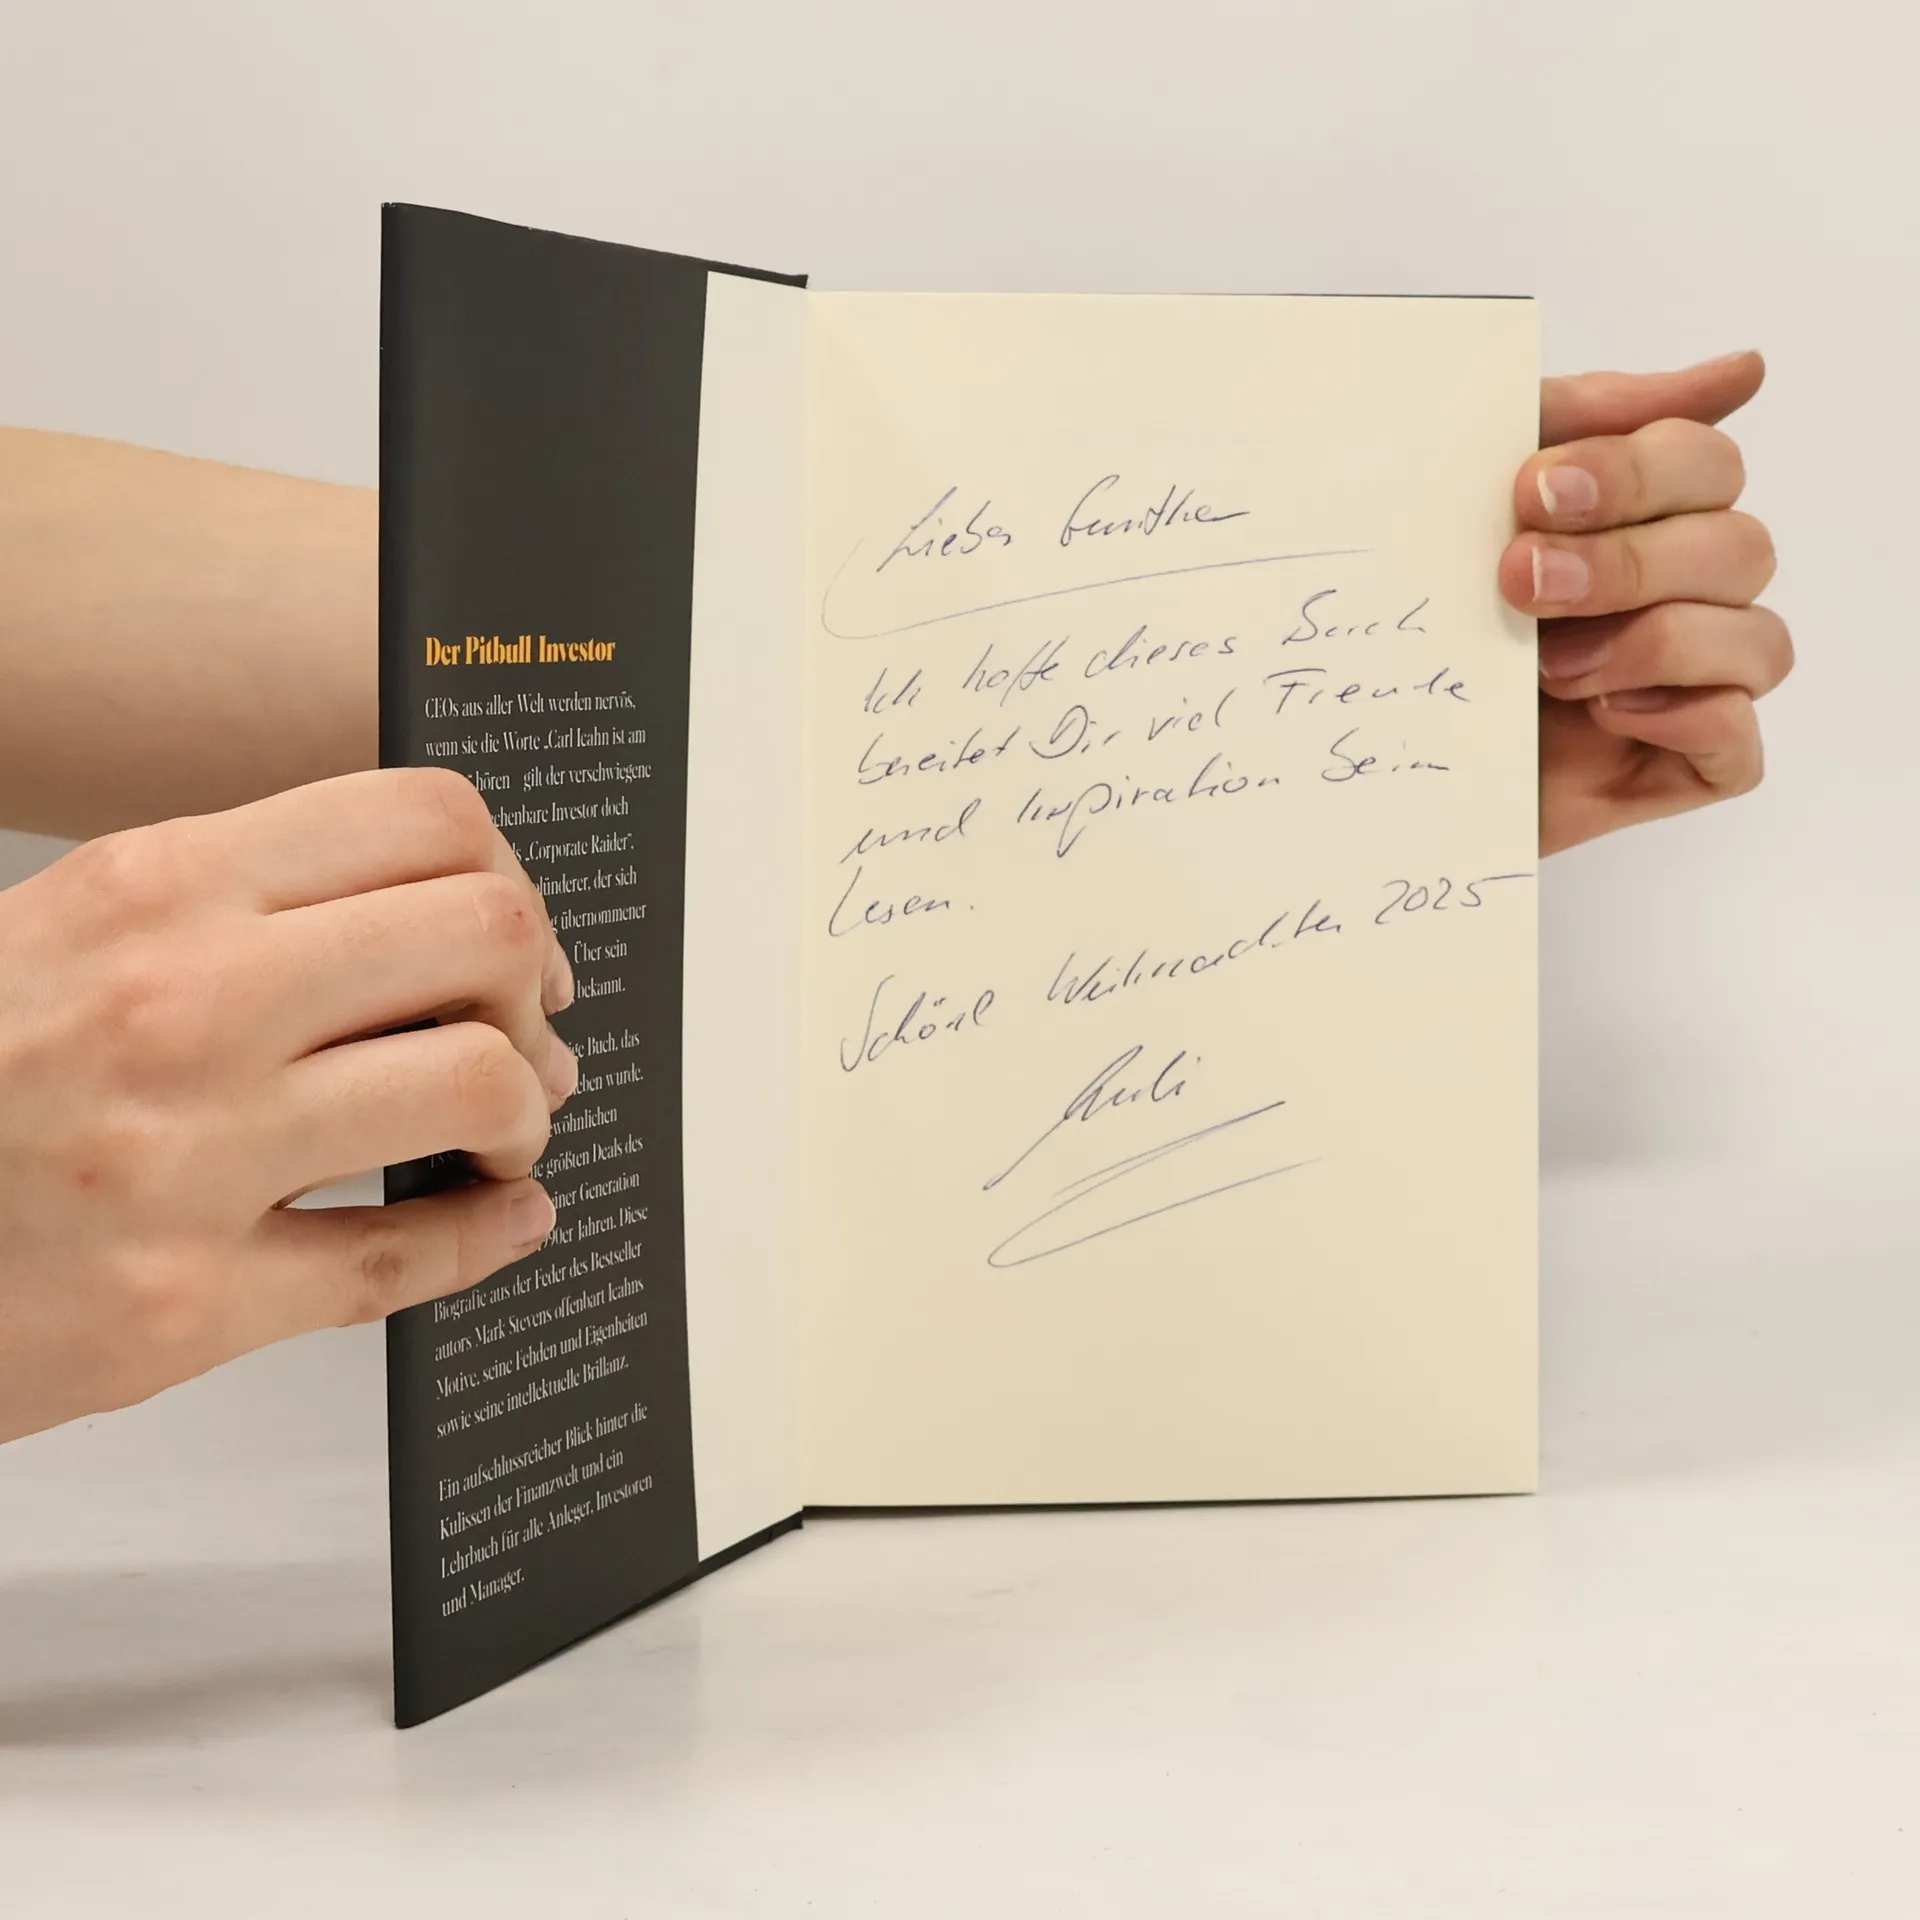 Der Pitbull Investor
CEOs aus aller Welt werden nervös,
wenn sie die Worte „Carl Icahn ist am
hören gilt der verschwiegene
Investor doch
„Corporate Raider“,
der sich
übernommener
Über sein
bekannt.
Buch, das
wurde.
größten Deals des
Generation
Jahren. Diese
Biografie aus der Feder des Bestseller
autors Mark Stevens offenbart Icahns
Motive, seine Fehden und Eigenheiten
sowie seine intellektuelle Brillanz.
Ein aufschlussreicher Blick hinter die
Kulissen der Finanzwelt und ein
Lehrbuch für alle Anleger, Investoren
und Manager.
Lieber Gunther
Ich hoffe dieses Buch
bereitet Dir viel Freude
und Inspiration beim
Lesen.
Schöne Weihnachten 2025